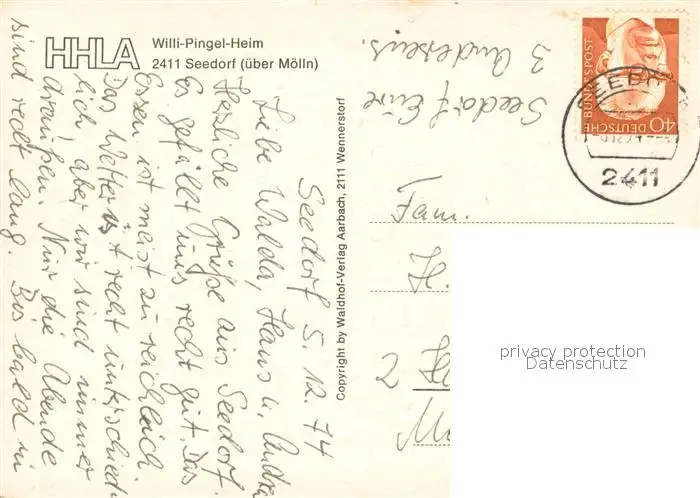 HHLA
Willi-Pingel-Heim
2411 Seedorf (über Mölln)
Seedorf 5.12.74
Liebe Walda, Hans u. Andrea
Herzliche Grüße aus Seedorf.
Es gefällt uns recht gut. Das
Essen ist meist zu reichlich.
Das Wetter ist recht unterschied-
lich, aber wir sind immer
draußen. Nur die Abende
sind recht lang. Bis bald in
Seedorf Eure
3 Andersens.
Copyright by Waldhof-Verlag Aarbach, 2111 Wennerstorf
DEUTSCHE BUNDESPOST
40
2411
Fam.
H.
2
privacy protection
Datenschutz